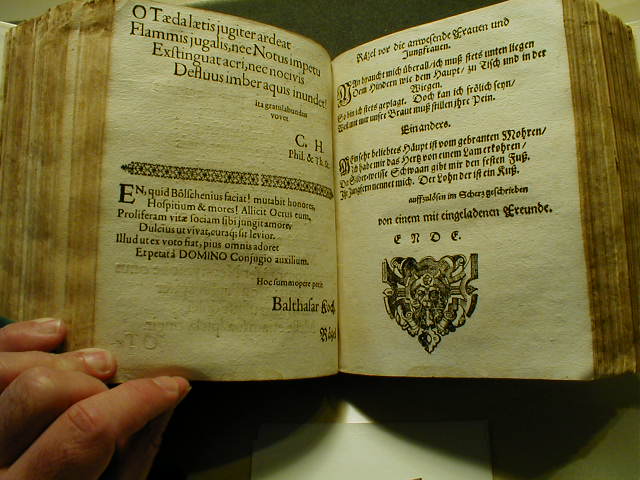 O Tæda lætis jugiter ardeat
Flammis jugalis, nec Notus impetu
Exstinguat acri, nec nocivis
Defluus imber aquis inundet!
ita gratulabundus
vovet
C. H
Phil. & Th. St.
EN, quid Bölschenius faciat! mutabit honores,
Hospitium & mores! Allicit Ocrus eum,
Proliferam vitæ sociam sibi jungit amore,
Dulcius ut vivat, curaq; sit levior.
Illud ut ex voto fiat, pius omnis adoret
Et petat à DOMINO Conjugio auxilium.
Hoc summopere petit
Balthasar Koch.
Räzel
Räzel vor die anwesende Frauen und
Jungfrauen.
MAn braucht mich überall/ ich muß stets unten liegen
Dem Hindern wie dem Haupt/ zu Tisch und in der
Wiegen.
So bin ich stets geplagt. Doch kan ich frölich seyn/
Weil mit mir unsre Braut muß stillen ihre Pein.
Ein anders.
MEin sehr beliebtes Häupt ist vom gebranten Mohren/
Ich habe mir das Hertz von einem Lam erkohren/
Der Silberweisse Schwaan gibt mir den festen Fuß.
Ihr Jungfern nennet mich. Der Lohn der ist ein Kuß.
auffzulösen im Schertz geschrieben
von einem mit eingeladenen Freunde.
E N D E.